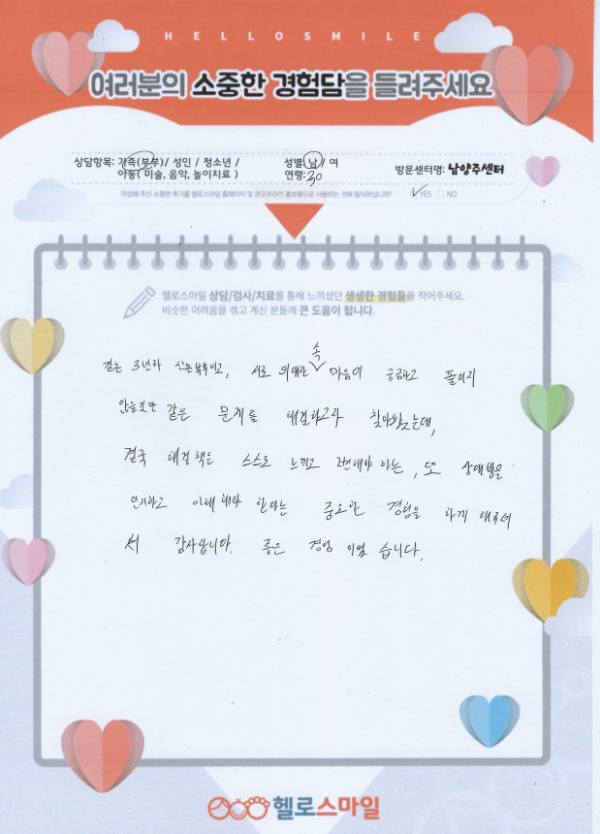 HELLOSMILE
여러분의 소중한 경험담을 들려주세요
상담항목: 가족(부부) / 성인 / 청소년 /
아동( 미술, 음악, 놀이치료 )
성별: 남 / 여
연령: 30
방문센터명: 남양주센터
작성해 주신 소중한 후기를 헬로스마일 홈페이지 및 온오프라인 홍보용으로 사용하는 것에 동의하십니까? ✓ YES □ NO
헬로스마일 상담/검사/치료를 통해 느끼셨던 생생한 경험들을 적어주세요.
비슷한 어려움을 겪고 계신 분들께 큰 도움이 됩니다.
결혼 3년차 부부이고, 서로 속 마음이 궁금하고 풀리지
않을 같은 문제를 해결하고자 찾아왔는데,
결국 해결책은 스스로 느끼고 하는, 또 상대방을
인지하고 이해해야 한다는 중요한 경험을 하게
서 감사합니다. 좋은 경험 이었습니다.
헬로스마일